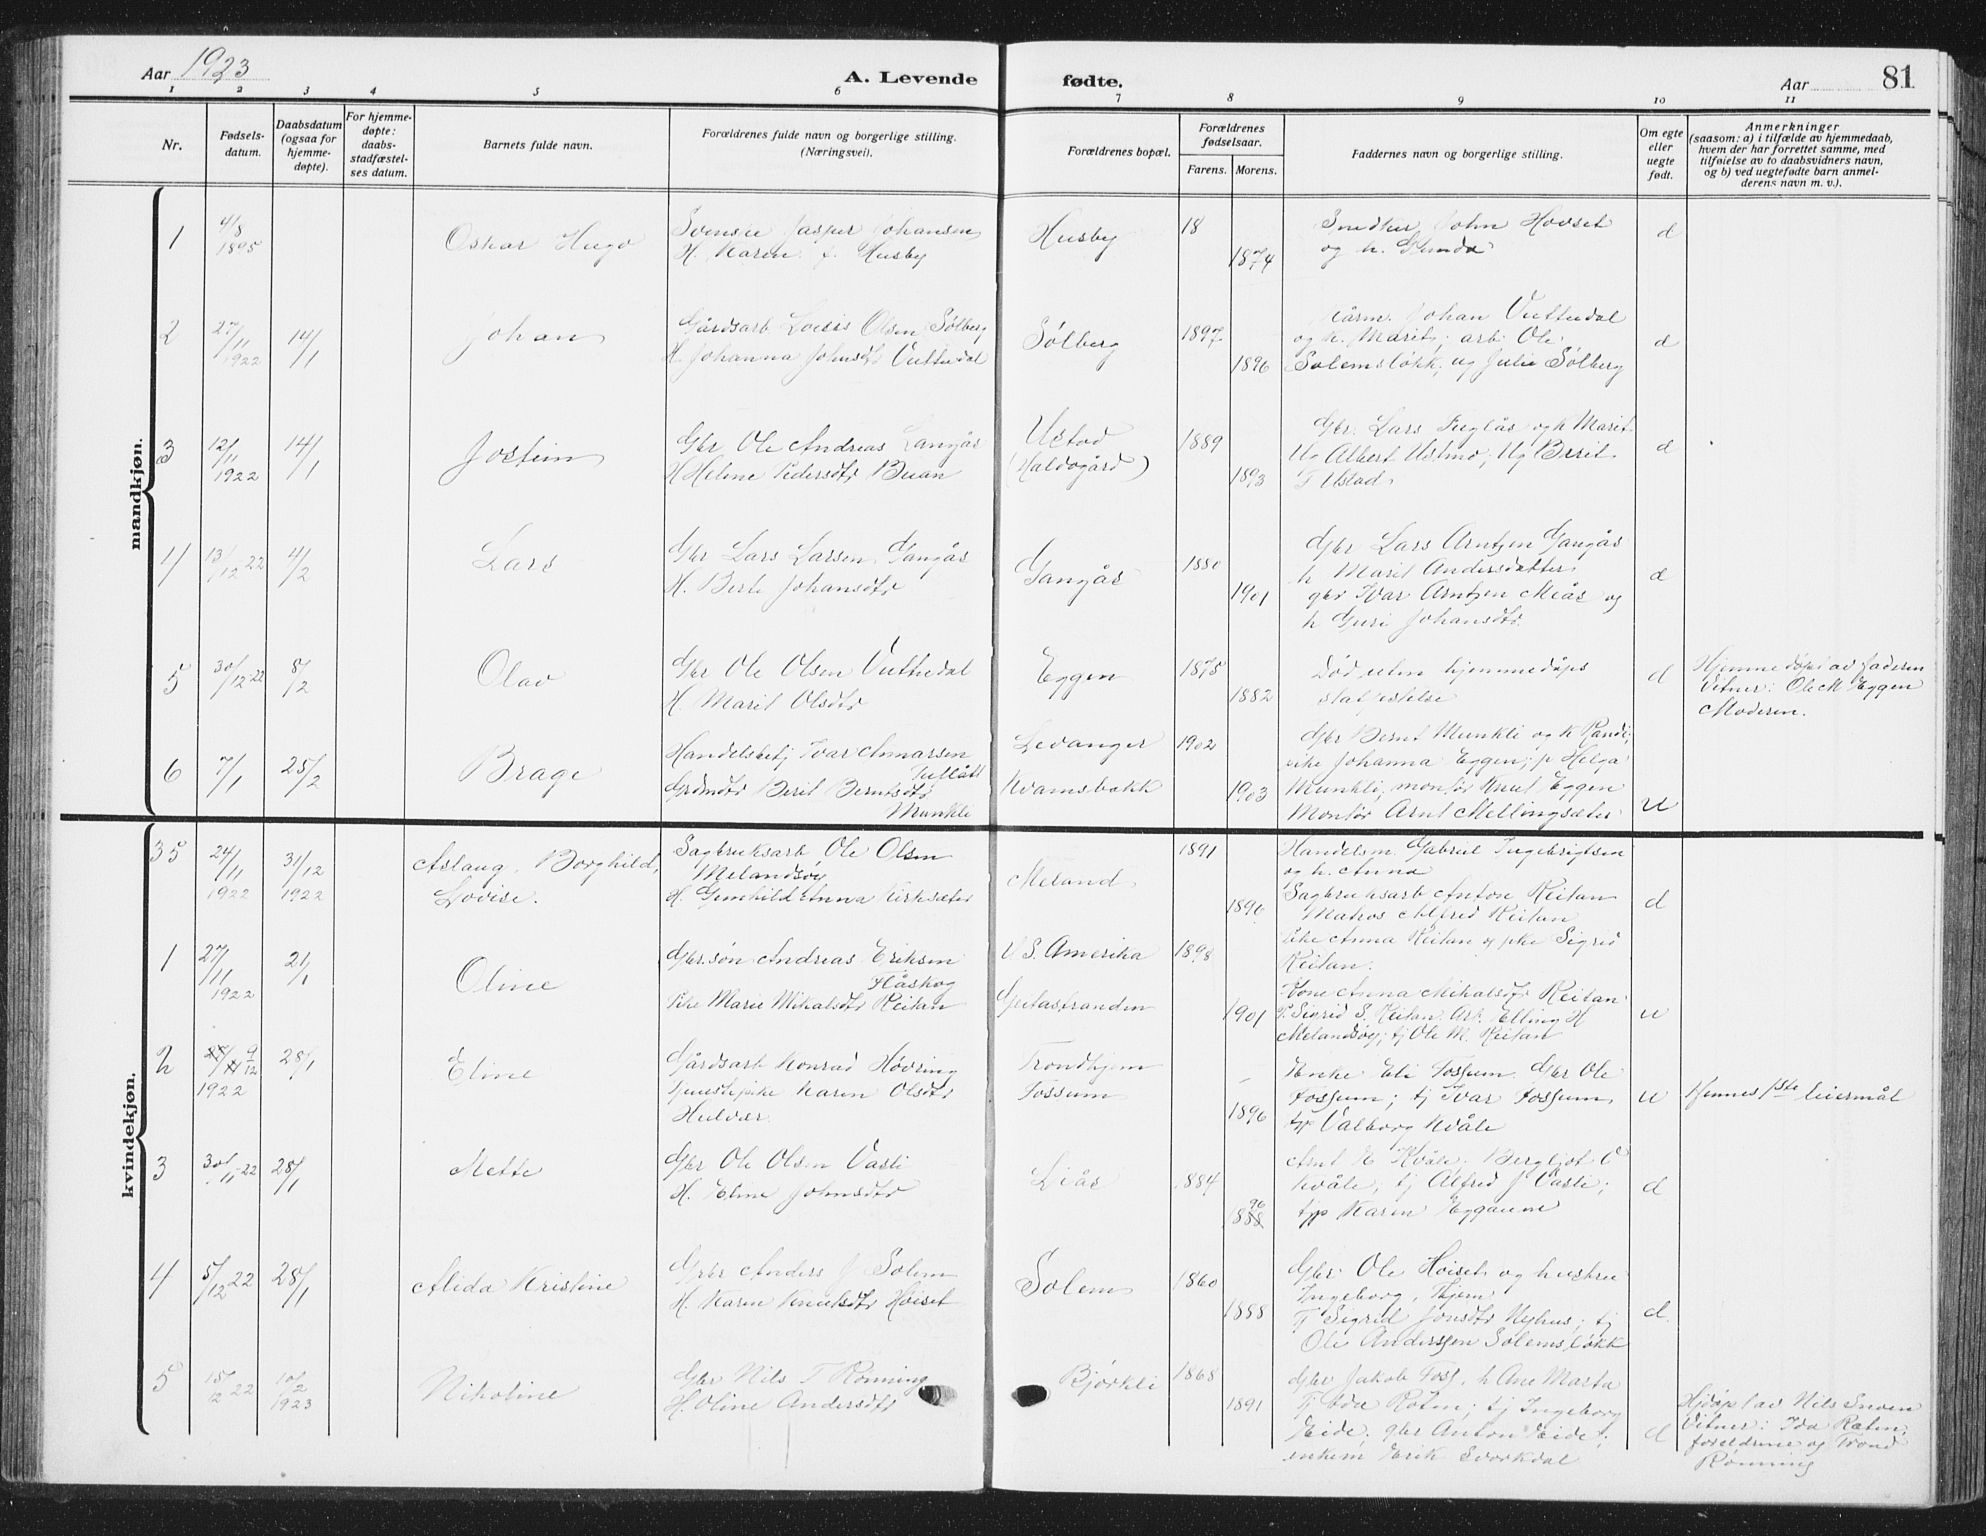 Aar 1923
A. Levende fødte.
Aar 81
1 2 3 4 5 6 7 8 9 10 11
Nr.
Fødsels-
datum.
Daabsdatum
(ogsaa for
hjemme-
døpte).
For hjemme-
døpte:
daabs-
stadfæstel-
ses datum.
Barnets fulde navn.
Forældrenes fulde navn og borgerlige stilling.
(Næringsvei).
Forældrenes bopæl.
Forældrenes
fødselsaar.
Farens. Morens.
Faddernes navn og borgerlige stilling.
Om egte
eller
uegte
født.
Anmerkninger
(saasom: a) i tilfælde av hjemmedaab,
hvem der har forrettet samme, med
tilføielse av to daabsvidners navn,
og b) ved uegtefødte barn anmel-
derens navn m. v.).
mandkjøn.
1 4/8 1895 Oskar Hugo
Jasper Johansen
H. Karen f. Husby
Husby 18 1874
John Hovset
og h. Gunda
d
2 27/11 1922 14/1 Johan
Gårdsarb Olsen Sølberg
H. Johanna Johnsdtr Vuttudal
Sølberg 1897 1896
Johan Vuttudal
og h. Marit; arb. Ole
Solemsløkk, og Julie Sølberg
d
3 12/11 1922 14/1 Jostein
Gbr Ole Andreas Langås
H Helene Pedersdtr Buan
Ustad
(Haldogård)
1889 1893
Gbr. Lars Fuglås og h Marit
Ug Albert Ustmo; Ug Berit
T Ustad
d
4 13/12 22 4/2 Lars
Gbr Lars Larsen Gangås
H. Berte Johansdtr
Gangås 1880 1901
Gbr Lars Arntsen Gangås
h Marit Andersdatter
gbr Ivar Arntsen Meås og
h Guri Johansdtr
d
5 30/12 22 8/2 Olav
Gbr Ole Olsen Vuttudal
H. Marit Olsdtr
Eggen 1878 1882
Død uten hjemmedåps
statfestelse
d
Hjemmedøpt av faderen
Vitner: Ole M Eggen
Moderen.
6 7/1 25/2 Brage
Handelsbetj Ivar Anmarsen
Grdmdtr Berit Berntsdtr
Munkli
Levanger
Kvamsbakk
1902 1903
Gbr Bernt Munkli og h Randi;
pike Johanna Eggen; p Helga
Munkli, montør Knut Eggen
Montør Arnt Mellingsæter
u
kvindekjøn.
35 24/11 1922 31/12 1922
Aslaug Borghild
Lovise.
Sagbruksarb Ole Olsen
Melandsøy
H. Gunhild Anna Kirksæter
Meland 1891 1896
Handelsm. Gabriel Ingebrigtsen
og h. Anna
Sagbruksarb Anton Reitan
Matros Alfred Reitan
Pike Anna Reitan og pke Sigrid
Reitan.
d
1 27/11 1922 21/1 Oline
Gbr.søn Andreas Eriksen
Flåskog
Pike Marie Mikalsdtr Reitan
U S. Amerika
Geitastranden
1898 1901
Kone Anna Mikalsdtr Reitan
P. Sigrid S. Reitan Arb. Elling H
Melandsøy; tj Ole M. Reitan
u
2 9/12 1922 28/1 Eline
Gårdsarb Konrad Høvring
Tjenestepike Karen Olsdtr
Hulvær
Trondhjem
Fossum
– 1896
Enke Eli Fossum Gbr Ole
Fossum; tj Ivar Fossum
tjp Valborg Kvåle
u
Hennes 1ste leiermål
3 30/11 22 28/1 Mette
Gbr Ole Olsen Vasli
H. Eline Johnsdtr
Liås 1884 1888 96
Arnt E Kvåle, Bergljot O
Kvåle; tj Alfred J Vasli;
tjp Karen Eggaune
d
4 5/12 22 28/1 Alida Kristine
Gbr Anders J Solem
H. Karen Knutsdtr Høiset
Solem 1860 1888
Gbr Ole Høiset og hustru
Ingeborg, Hjem
P Sigrid Jonsdtr Nyhus; tj
Ole Anderssen Solemsløkk
d
5 15/12 22 10/2 1923 Nikoline
Gbr Nils T Rønning
H. Oline Andersdtr
Bjørkli 1868 1891
Gbr Jakob Foss, h Ane Marta
Tj Ida Røten; tj Ingeborg
Eide; gbr Anton Eide;
enkem Erik Svorkdal
d
Hjdøpt av Nils Snoen
Vitner: Ida Røten,
foreldrene og Trond
Rønning